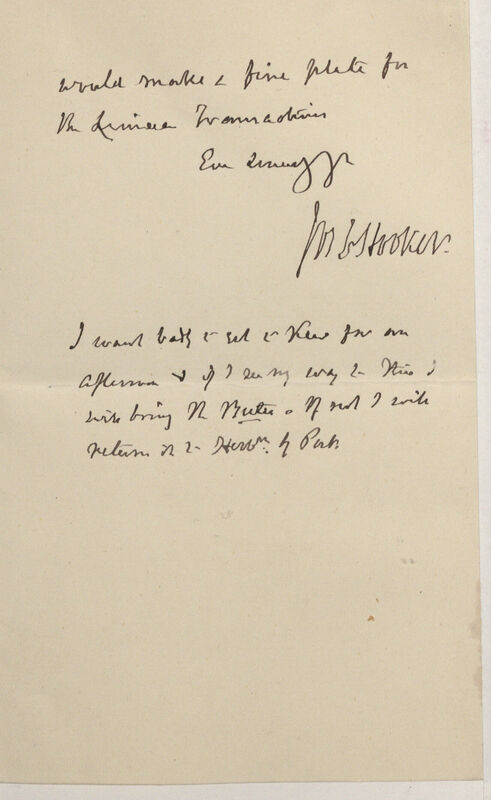 would make a fine plate for
the Linnean Transactions
Ever sincerely yrs
Jos D Hooker.
I want badly to get to Kew for an
afternoon & if I see my way to this I
will bring the  . If not I will
return it to Herbm. by Post